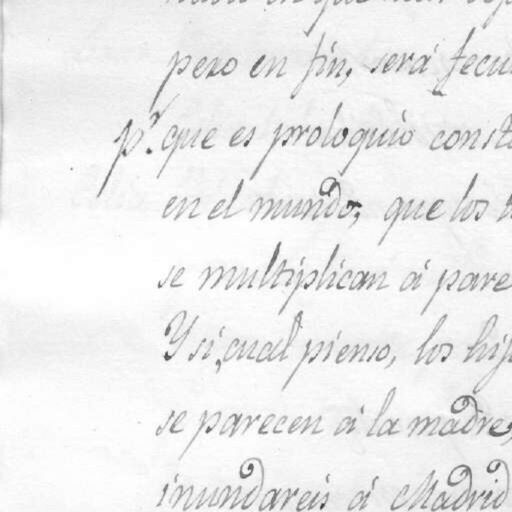 pero en fin, será fecu
p.r que es proloquio const
en el mundo; que los t
se multiplican á pare
Y si, cual pienso, los hij
se parecen á la madre,
inundareis á Madrid